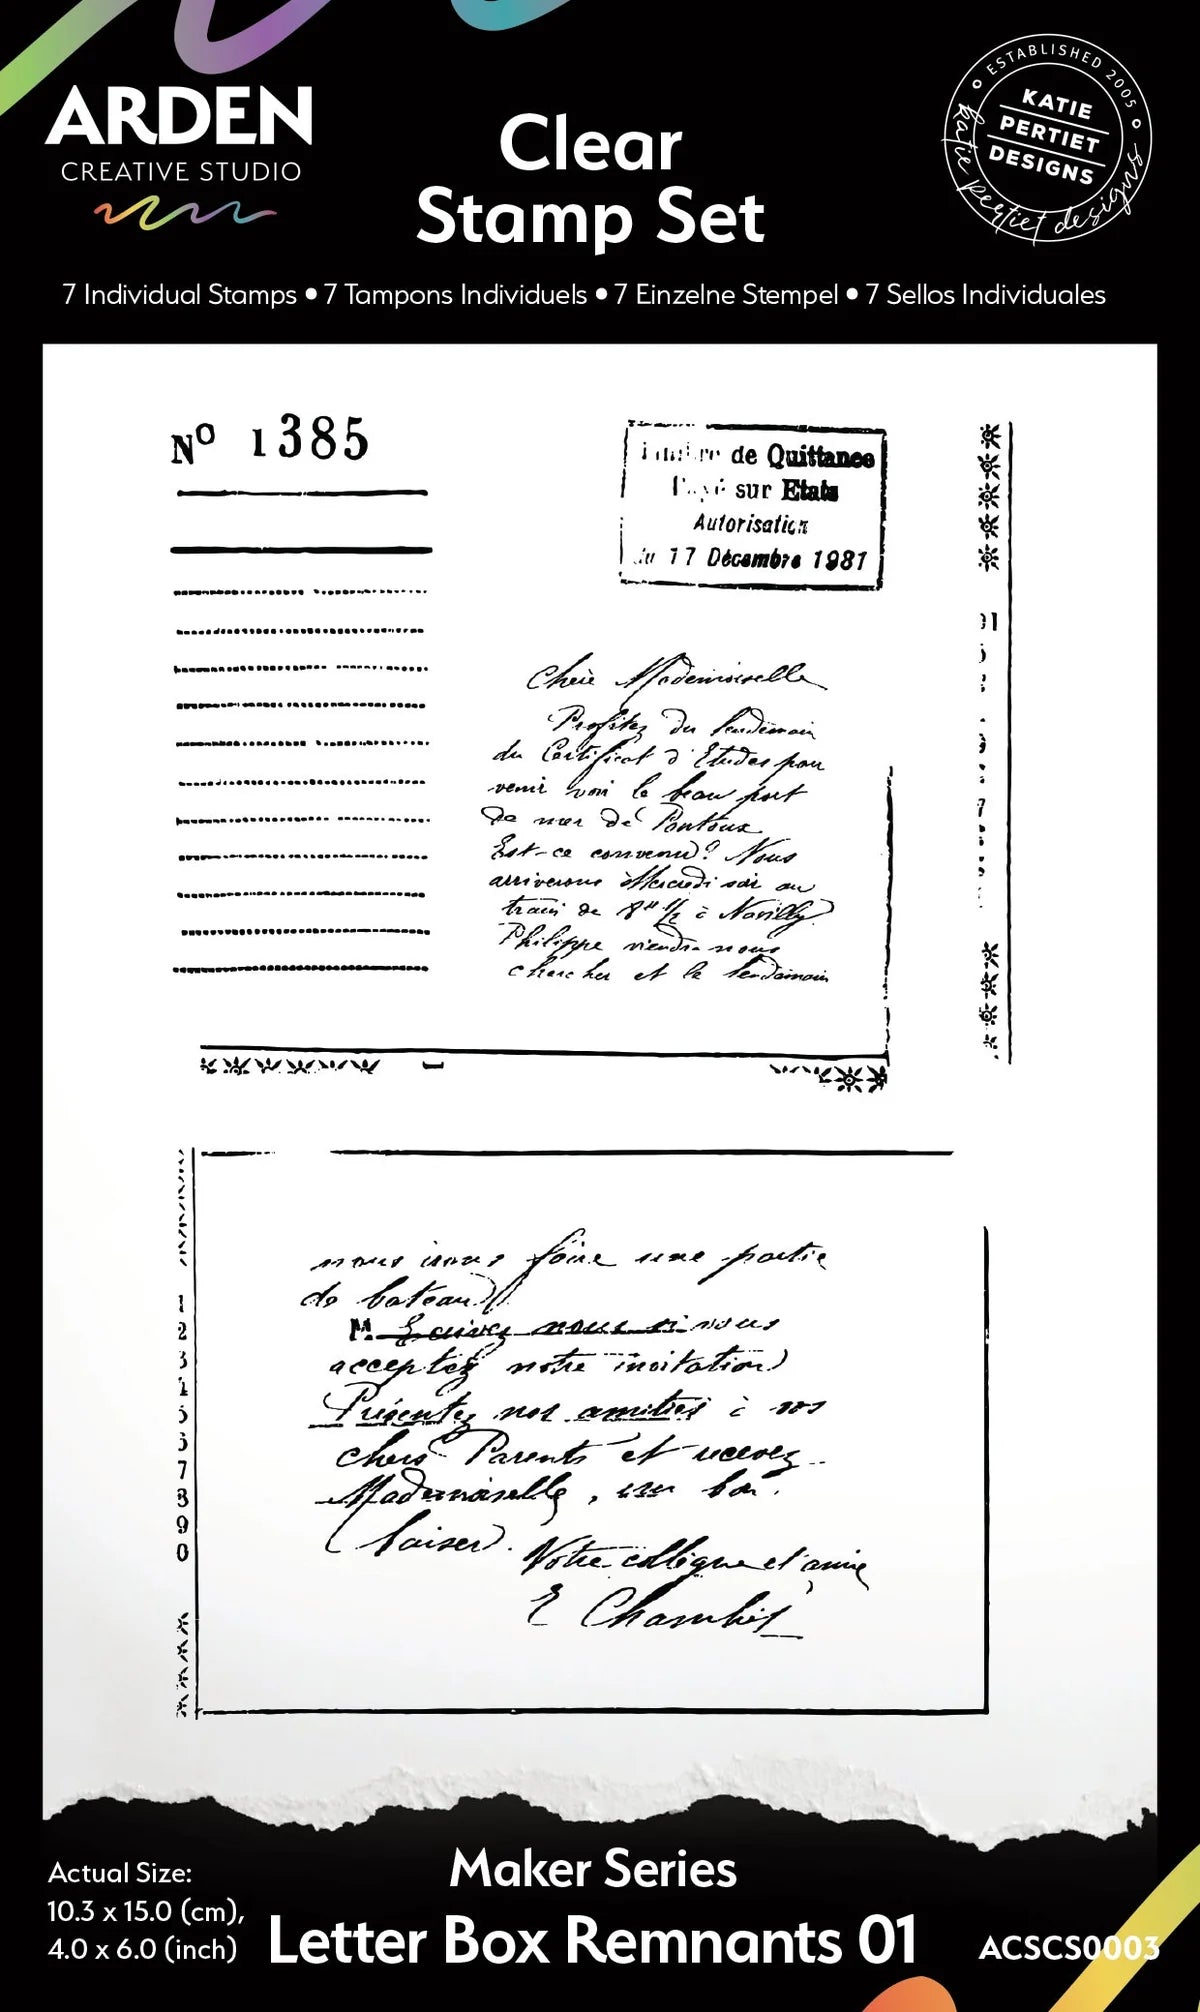 ARDEN
CREATIVE STUDIO
Clear
Stamp Set
ESTABLISHED 2005
KATIE
PERTIET
DESIGNS
katie pertiet designs
7 Individual Stamps • 7 Tampons Individuels • 7 Einzelne Stempel • 7 Sellos Individuales
Nº 1385
de Quittance
sur Etats
Autorisation
du 17 Décembre 1981
Chère Mademoiselle
Profitez du lendemain
du Certificat d'Etudes pour
venir voir le beau port
de mer de Pontoux
Est-ce convenu? Nous
arriverons Mercredi soir au
train de 8H 1/2 à Navilly
Philippe viendra nous
chercher et le lendemain
nous irons faire une partie
de bateau
M. Ecrivez nous si vous
acceptez notre invitation
Présentez nos amitiés à vos
chers Parents et recevez
Mademoiselle, un bon
baiser.
Votre collègue et amie
E
1
2
3
5
7
8
9
0
Actual Size:
10.3 x 15.0 (cm),
4.0 x 6.0 (inch)
Maker Series
Letter Box Remnants 01
ACSCS0003